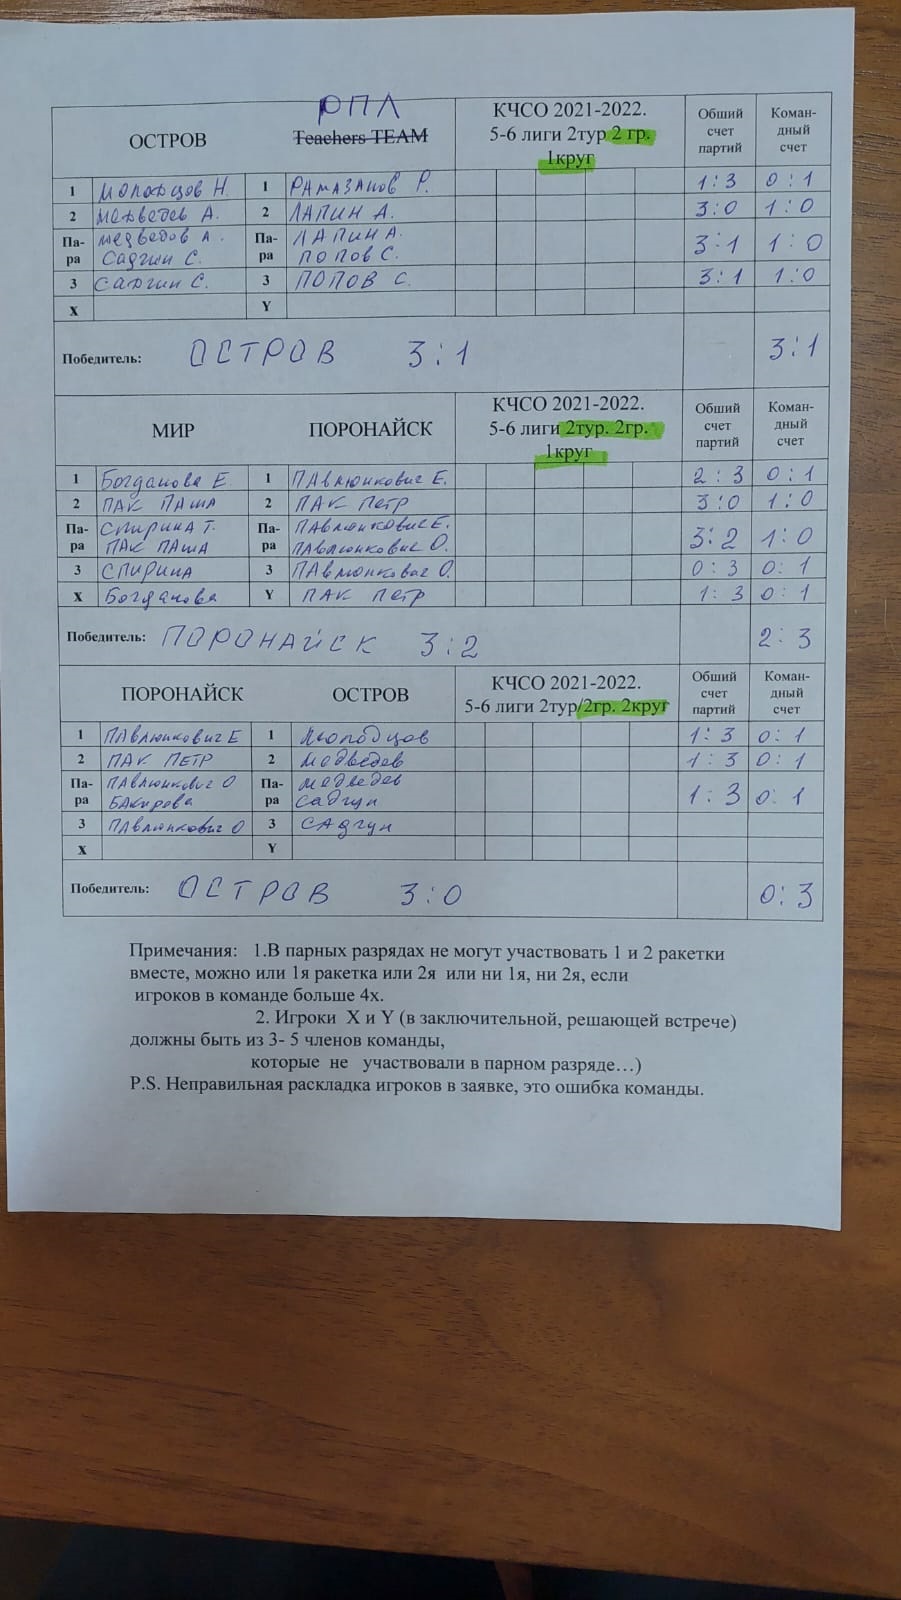 РПЛ
ОСТРОВ Teachers TEAM КЧСО 2021-2022. 5-6 лиги 2тур 2 гр. 1круг Обший счет партий Коман-дный счет
1 МОЛОДЦОВ Н. 1 РАМАЗАНОВ Р. 1:3 0:1
2 МЕДВЕДЕВ А. 2 ЛАПИН А. 3:0 1:0
Па-ра МЕДВЕДОВ А. САДГИН С. Па-ра ЛАПИН А. ПОПОВ С. 3:1 1:0
3 САДГИН С. 3 ПОПОВ С. 3:1 1:0
X Y
Победитель: ОСТРОВ 3:1 3:1
МИР ПОРОНАЙСК КЧСО 2021-2022. 5-6 лиги 2тур. 2гр. 1круг Обший счет партий Коман-дный счет
1 Богданова Е. 1 ПАвлюнкович Е. 2:3 0:1
2 ПАК ПАША 2 ПАК Петр 3:0 1:0
Па-ра СПИРИНА Т. ПАК ПАША Па-ра ПАвлюнкович Е. ПАвлюнкович О. 3:2 1:0
3 СПИРИНА 3 ПАвлюнкович О. 0:3 0:1
X Богданова Y ПАК Петр 1:3 0:1
Победитель: ПОРОНАЙСК 3:2 2:3
ПОРОНАЙСК ОСТРОВ КЧСО 2021-2022. 5-6 лиги 2тур/2гр. 2круг Обший счет партий Коман-дный счет
1 ПАвлюнкович Е 1 Молодцов 1:3 0:1
2 ПАК ПЕТР 2 Медведев 1:3 0:1
Па-ра ПАвлюнкович О Бакирова Па-ра медведев Садгун 1:3 0:1
3 ПАвлюнкович О 3 САДГУН
X Y
Победитель: ОСТРОВ 3:0 0:3
Примечания: 1.В парных разрядах не могут участвовать 1 и 2 ракетки
вместе, можно или 1я ракетка или 2я или ни 1я, ни 2я, если
игроков в команде больше 4х.
2. Игроки X и Y (в заключительной, решающей встрече)
должны быть из 3- 5 членов команды,
которые не участвовали в парном разряде…)
P.S. Неправильная раскладка игроков в заявке, это ошибка команды.